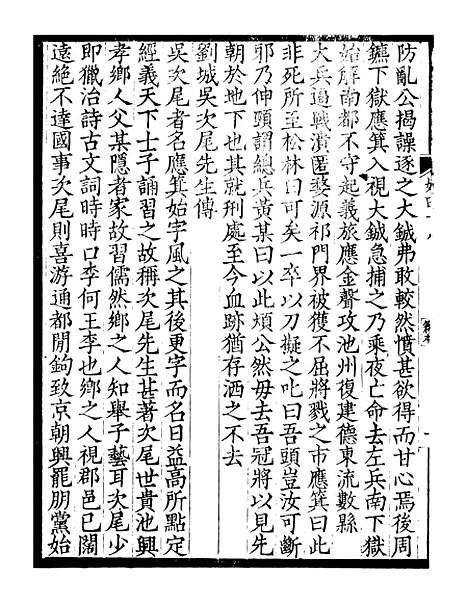 防亂公揭譟逐之大鋮弗敢較然憤甚欲得而甘心焉後周
鑣下獄應箕入視大鋮急捕之乃乘夜亡命去左兵南下獄
始解南都不守起義旅應金聲攻池州復建德東流數縣
大兵逼戰潰匿婺源祁門界被獲不屈將戮之市應箕曰此
非死所至松林曰可矣一卒以刀擬之叱曰吾頭豈汝可斷
邪乃伸頸謂總兵黃某曰以此煩公然毋去吾冠將以見先
朝於地下也其就刑處至今血跡猶存洒之不去
劉城吳次尾先生傳
吳次尾者名應箕始字風之其後更字而名日益高所點定
經義天下士子誦習之故稱次尾先生甚著次尾世貴池興
孝鄉人父某隱者家故習儒然鄉之人知舉子藝耳次尾少
即獵治詩古文詞時時口李何王李也鄉之人視郡邑已闊
遠絕不達國事次尾則喜游通都閒鉤致京朝興罷朋黨始